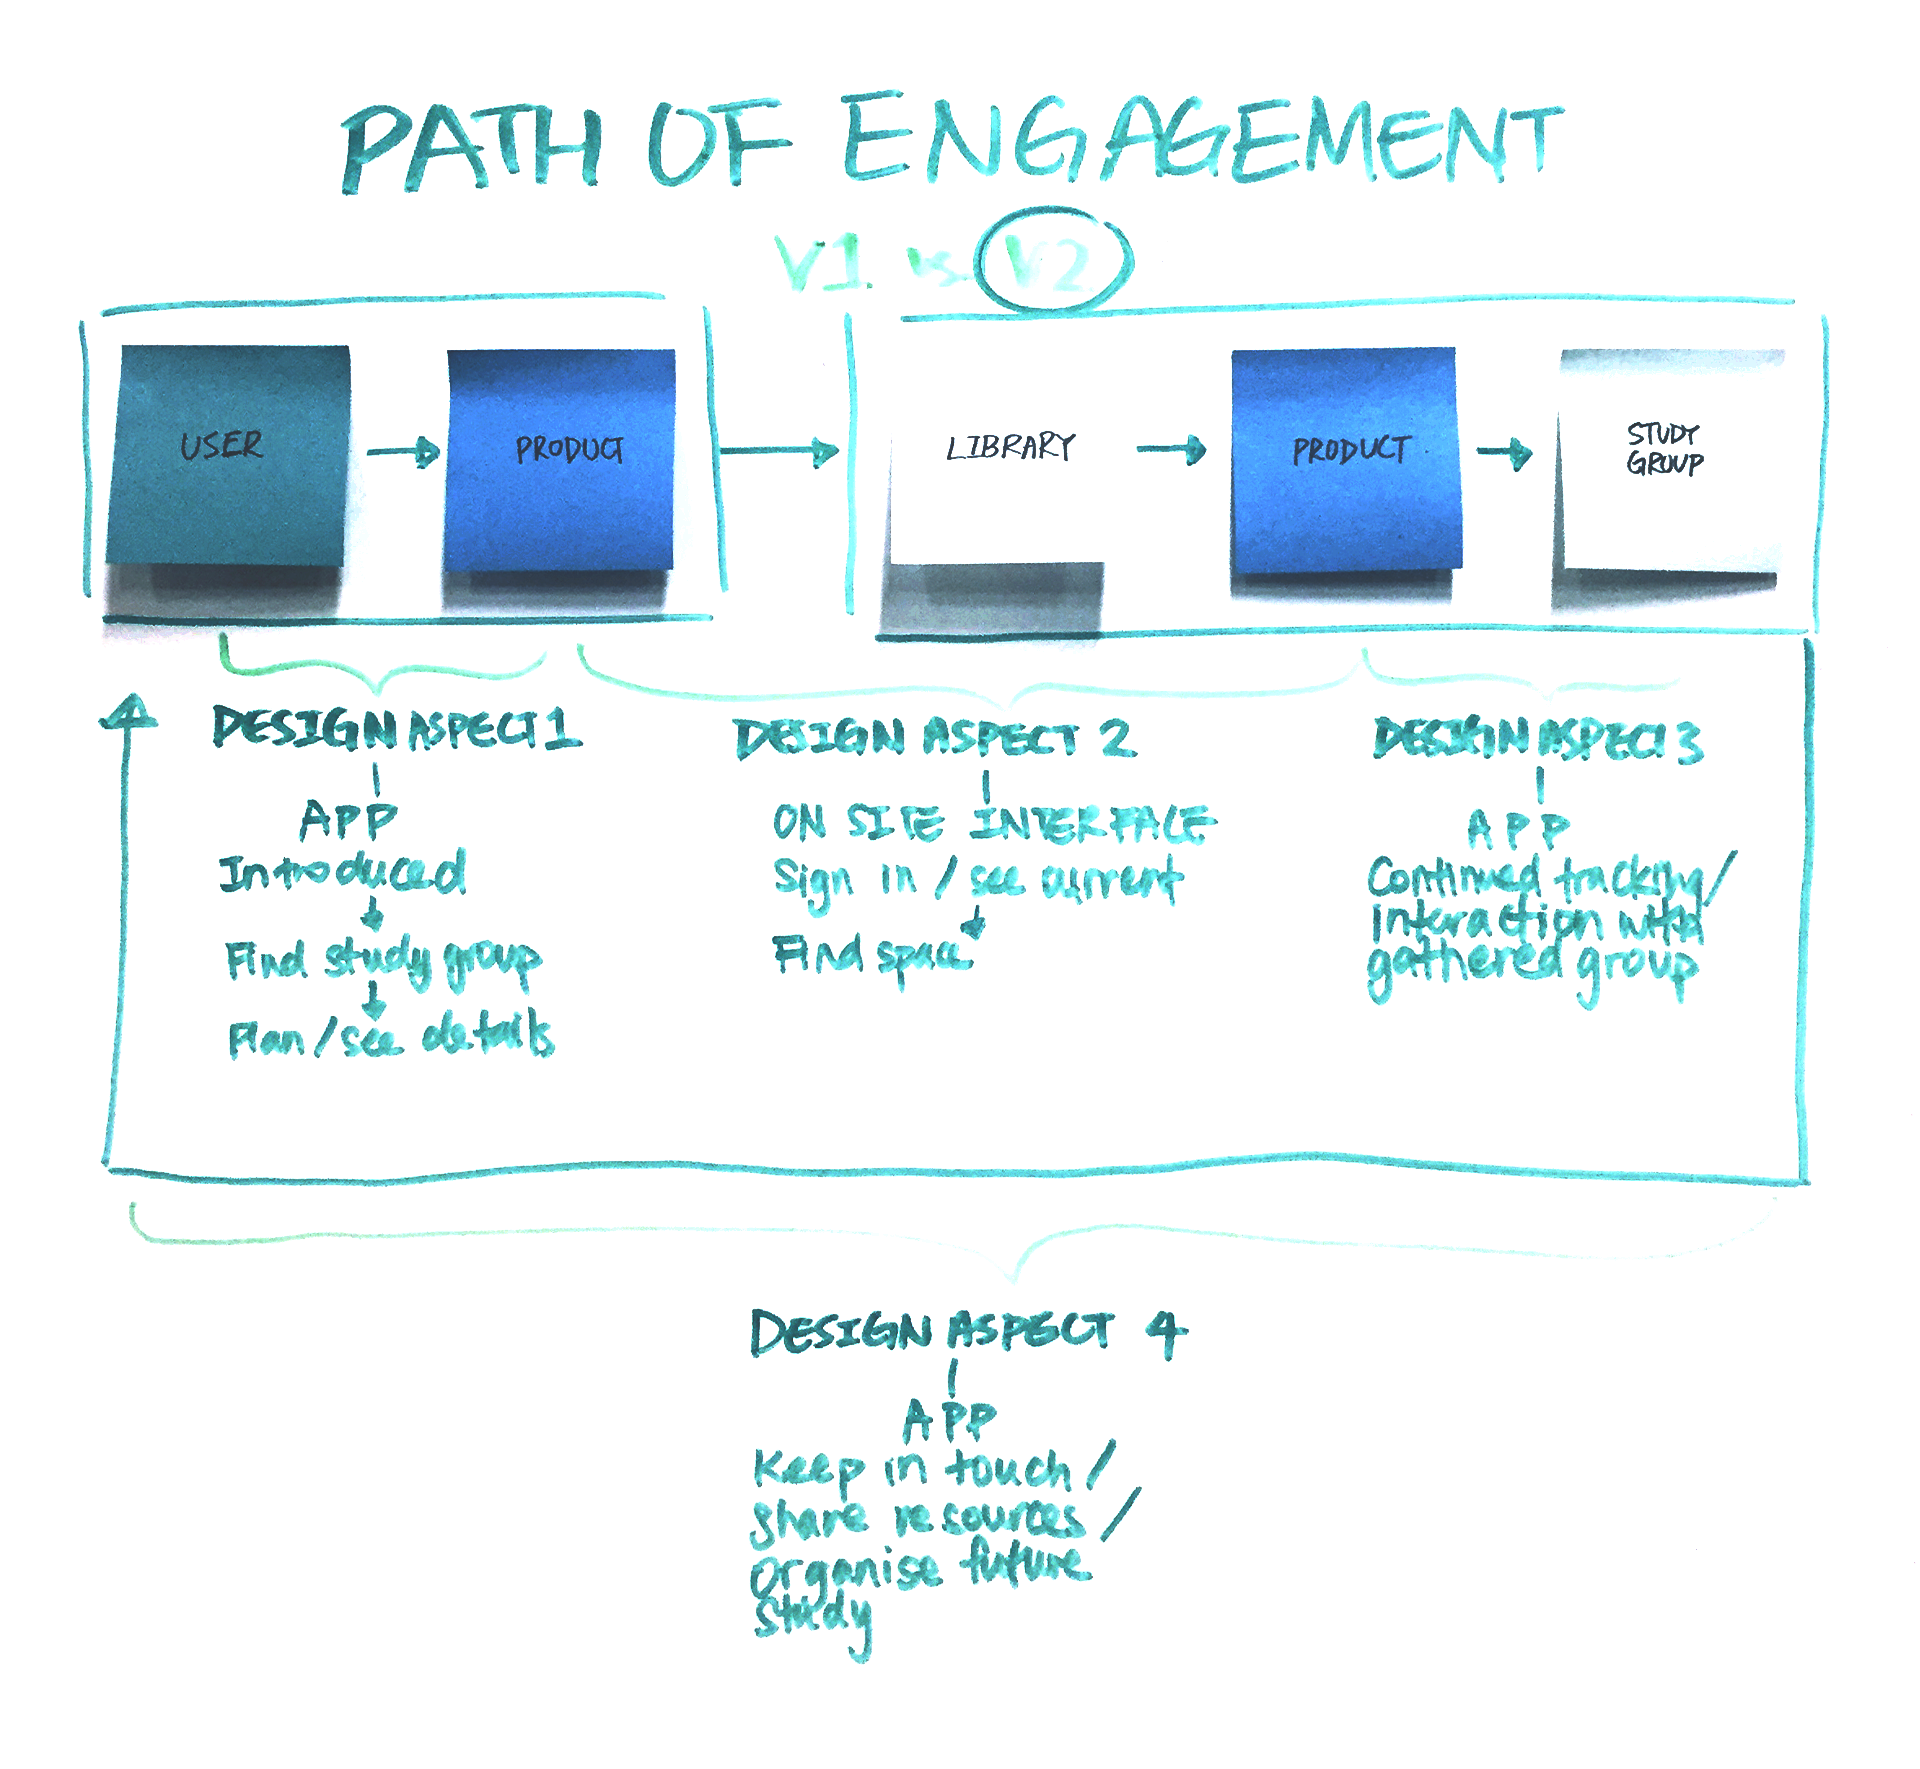 PATH OF ENGAGEMENT
V1. vs. V2
USER
PRODUCT
LIBRARY
PRODUCT
STUDY
GROUP
DESIGN ASPECT 1
APP
Introduced
Find study group
Plan/see details
DESIGN ASPECT 2
ON SITE INTERFACE
Sign in / see current
Find space
DESIGN ASPECT 3
APP
Continued tracking/
interaction with
gathered group
DESIGN ASPECT 4
APP
Keep in touch /
Share resources /
Organise future
Study